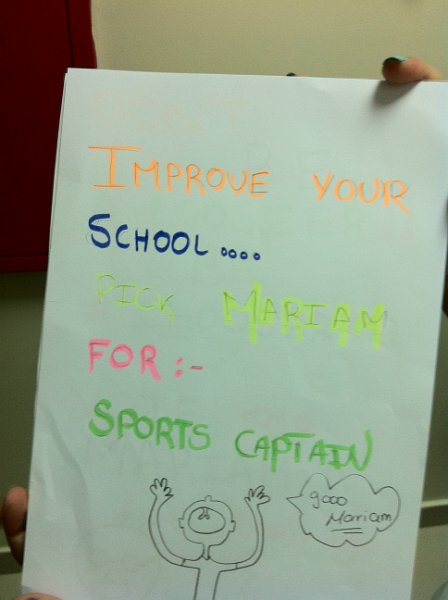 DON'T
IMPROVE YOUR
SCHOOL....
PICK MARIAM
FOR:-
SPORTS CAPTAIN
gooo
Mariam